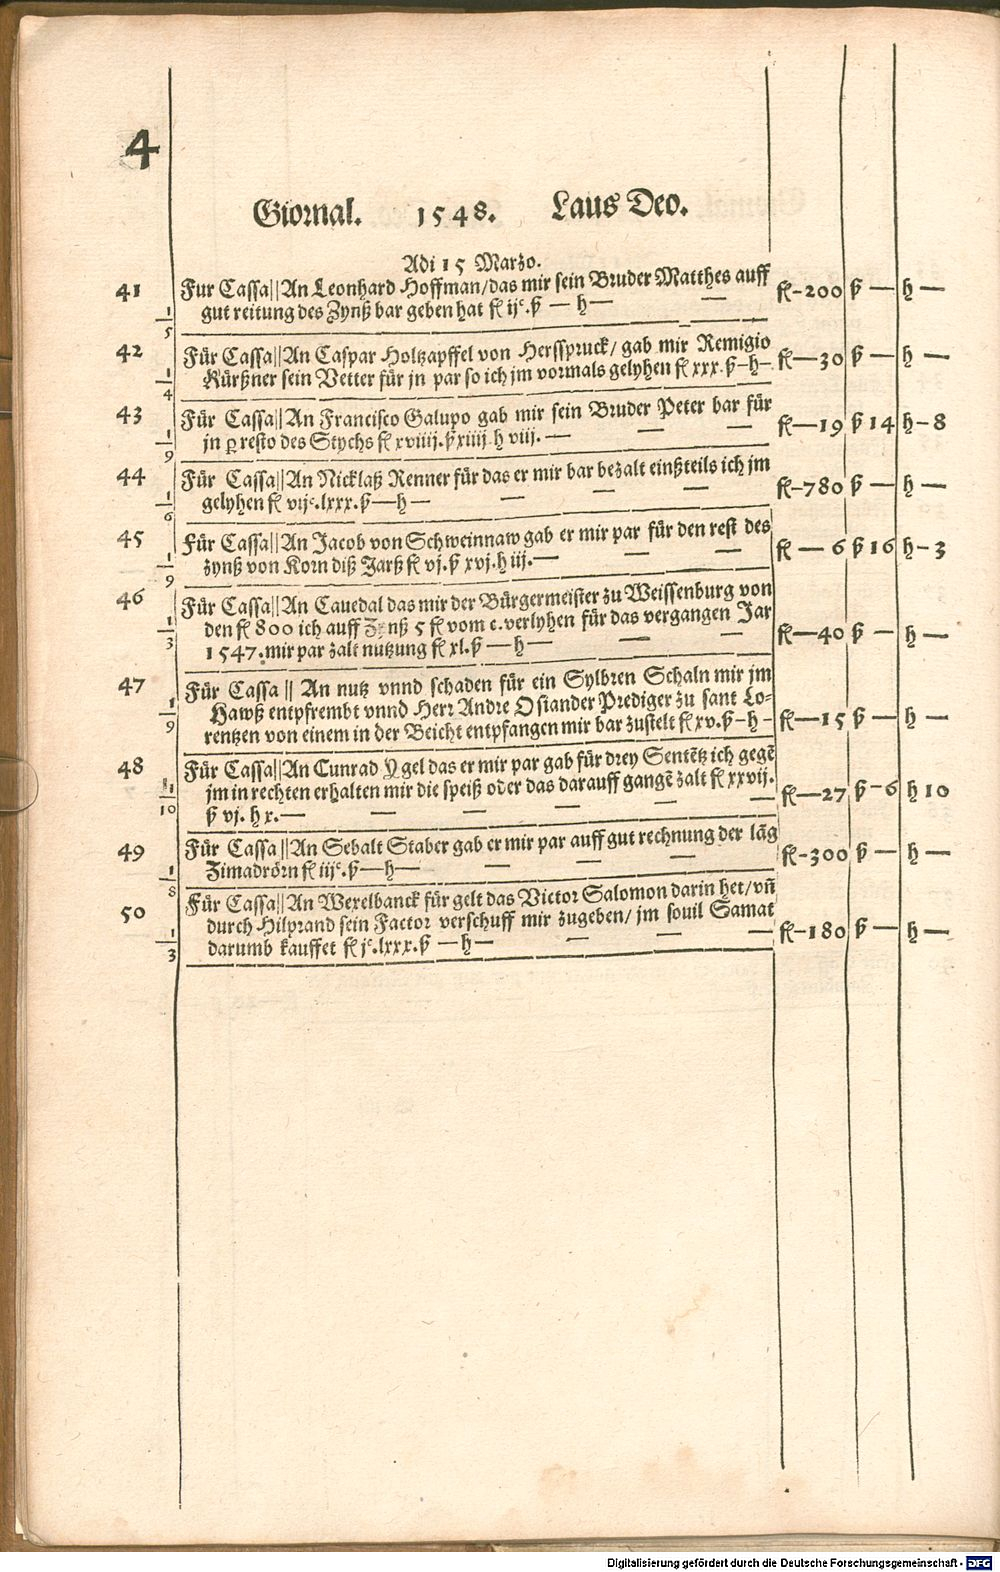 4
Giornal. 1548. Laus Deo.
Adi 15 Marzo.
41 Fur Cassa || An Leonhard Hoffman / das mir sein Bruder Matthes auff
1/5 gut reitung des Zynß bar geben hat fl ijᶜ. ß — h — — fl-200 ß — h —
42 Für Cassa || An Caspar Holtzapffel von Hersspruck / gab mir Remigio
1/4 Kürßner sein Vetter für jn par so ich jm vormals gelyhen fl xxx. ß-h- fl—30 ß — h —
43 Für Cassa || An Francisco Galupo gab mir sein Bruder Peter bar für
1/9 jn ꝑ resto des Stychs fl xviiij. ß xiiij h viij. — — — fl—19 ß 14 h-8
44 Für Cassa || An Nicklaß Renner für das er mir bar bezalt einßteils ich jm
1/6 gelyhen fl vijᶜ.lxxx. ß—h— — — — fl-780 ß — h —
45 Für Cassa || An Jacob von Schweinnaw gab er mir par für den rest des
1/9 zynß von Korn diß Jarß fl vj. ß xvj. h iij. — — — fl — 6 ß 16 h-3
46 Für Cassa || An Cauedal das mir der Bürgermeister zu Weissenburg von
den fl 800 ich auff Zynß 5 fl vom c. verlyhen für das vergangen Jar
1/3 1547. mir par zalt nutzung fl xl. ß — h — — — fl—40 ß — h —
47 Für Cassa || An nutz vnnd schaden für ein Sylbren Schaln mir jm
Hawß entpfrembt vnnd Herr Andre Osiander Prediger zu sant Lo-
1/9 rentzen von einem in der Beicht entpfangen mir bar zustelt fl xv. ß-h- fl—15 ß — h —
48 Für Cassa || An Cunrad Ygel das er mir par gab für drey Sentētz ich gegē
1/10 jm in rechten erhalten mir die speiß oder das darauff gangē zalt fl xxvij.
ß vj. h x. — — — — — — fl—27 ß-6 h 10
49 Für Cassa || An Sebalt Staber gab er mir par auff gut rechnung der lāg
1/8 Zimadrörn fl iijᶜ. ß—h— — — fl-300 ß — h —
50 Für Cassa || An Wexelbanck für gelt das Victor Salomon darin het / vn̄
durch Hilprand sein Factor verschuff mir zugeben / jm souil Samat
1/3 darumb kauffet fl jᶜ.lxxx. ß — h — — — — fl-180 ß — h —
Digitalisierung gefördert durch die Deutsche Forschungsgemeinschaft - DFG